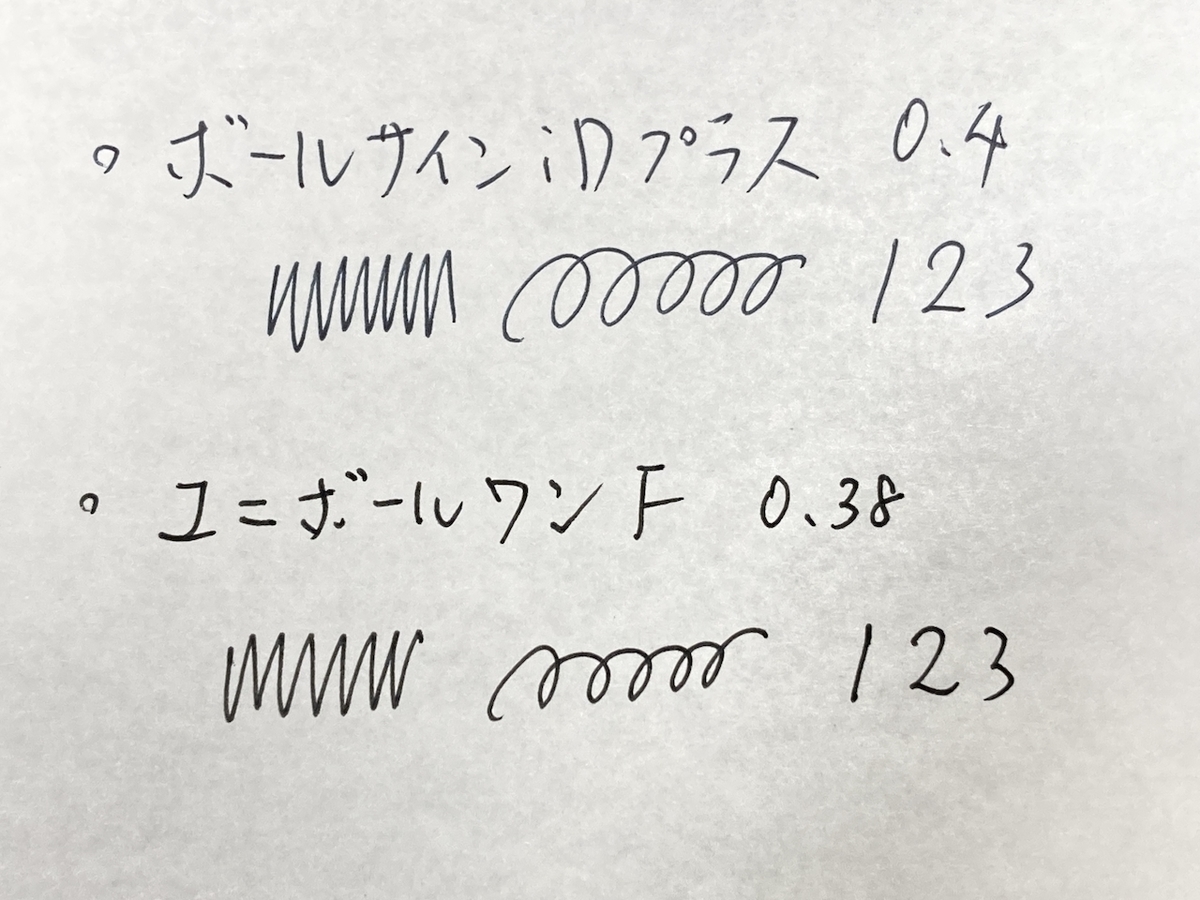 。ボールサインiDプラス 0.4
123
。ユニボールワンF 0.38
123